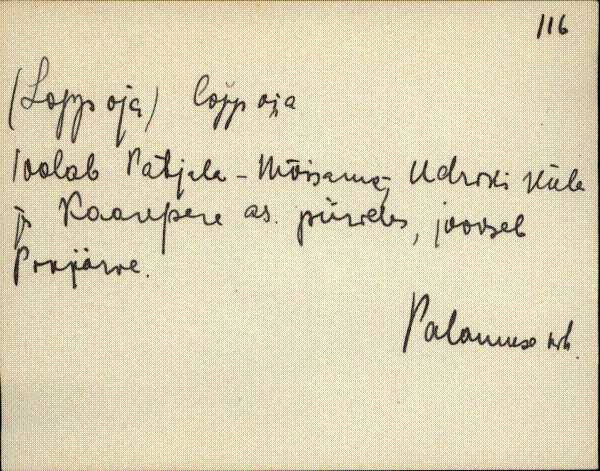 116
(Lopp oja) lopp oja
voolab Patjala - Mõisamaa, Udriki küla
ja Kaarepere as. piirides, jooseb
Prosjärve.
Palamuse khk.